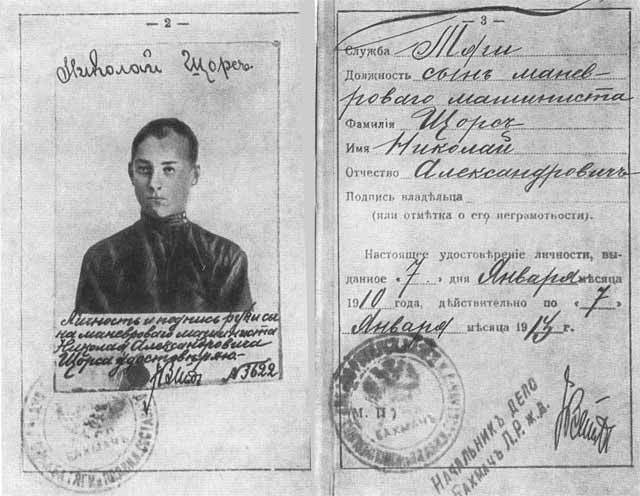 — 2 —
Николай Щорсъ.
Личность и подпись руки сы
на маневроваго машиниста
Николая Александровича
Щорса удостовѣряю—
№ 3622
БАХМАЧЪ
— 3 —
Служба Тяги
Должность сынъ манев-
роваго машиниста
Фамилія Щорсъ
Имя Николай
Отчество Александровичъ
Подпись владѣльца
(или отмѣтка о его неграмотности).
Настоящее удостовѣреніе личности, вы-
данное «7» дня Января мѣсяца
1910 года, дѣйствительно по «7»
Января мѣсяца 191 г.
М. П.
БАХМАЧЪ
НАЧАЛЬНИКЪ ДЕПО
БАХМАЧЪ Л.Р. Ж.Д.